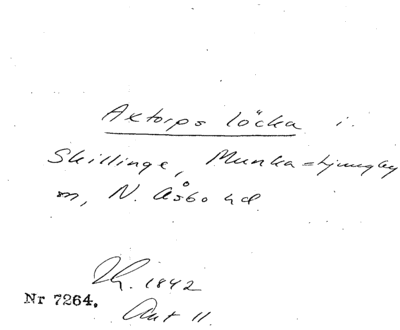 Axtorps löcka i
Skillinge, Munka-Ljungby
sn, N. Åsbo hd.
1842
Nr 7264.
Akt 11